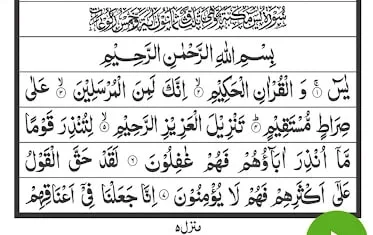 سورة يس مكية وهي ثلث وثمانون اية وخمس ركوعات
بِسْمِ اللهِ الرَّحْمٰنِ الرَّحِيْمِ
يٰسٓ ۚ۝۱ وَ الْقُرْاٰنِ الْحَكِيْمِ ۙ۝۲ اِنَّكَ لَمِنَ الْمُرْسَلِيْنَ ۙ۝۳ عَلٰى
صِرَاطٍ مُّسْتَقِيْمٍ ؕ۝۴ تَنْزِيْلَ الْعَزِيْزِ الرَّحِيْمِ ۙ۝۵ لِتُنْذِرَ قَوْمًا
مَّاۤ اُنْذِرَ اٰبَآؤُهُمْ فَهُمْ غٰفِلُوْنَ ۝۶ لَقَدْ حَقَّ الْقَوْلُ
عَلٰۤى اَكْثَرِهِمْ فَهُمْ لَا يُؤْمِنُوْنَ ۝۷ اِنَّا جَعَلْنَا فِيْۤ اَعْنَاقِهِمْ
منزل ۵